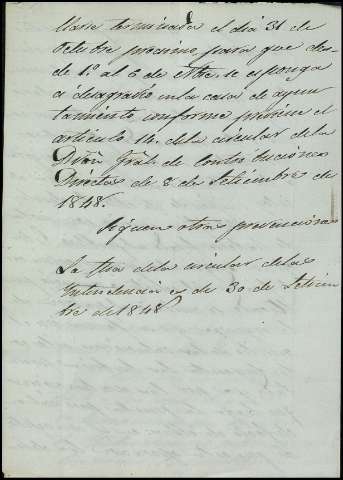 llarse terminada el dia 31 de
Octubre procsimo, para que des-
de 1.º al 6 de Nbre. se esponga
á desagravio en la casa de ayun
tamiento conforme previene el
artículo 14. de la circular de la
Dirón Gral. de Contribuciones
Directas de 8 de Setiembre de
1848.
Siguen otras prevenciones
La fha de la circular de la
Yntendencia es de 30 de Setiem
bre de 1848